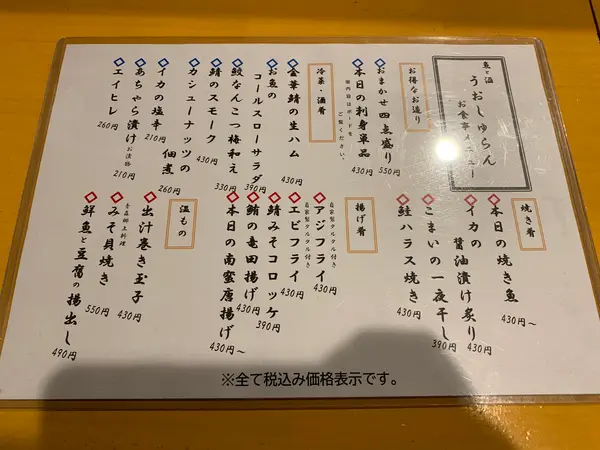 魚と酒
うおしゅらん
お食事メニュー
お得なお造り
おまかせ四点盛り
550円
本日の刺身単品
430円
ご覧ください。
冷菜・酒肴
金華鯖の生ハム
430円
お魚の
コールスローサラダ
390円
鮫なんこつ梅和え
330円
鯖のスモーク
430円
カシューナッツの
佃煮
260円
イカの塩辛
210円
あちゃら漬け
お漬物
210円
エイヒレ
260円
焼き肴
本日の焼き魚
430円~
イカの
醤油漬け炙り
430円
こまいの一夜干し
390円
鮭ハラス焼き
430円
揚げ肴
アジフライ
自家製タルタル付き
430円
エビフライ
自家製タルタル付き
430円
鯖みそコロッケ
390円
鮪の竜田揚げ
430円
本日の南蛮唐揚げ
430円~
温もの
出汁巻き玉子
430円
青森郷土料理
みそ貝焼き
550円
鮮魚と豆腐の揚出し
490円
※全て税込み価格表示です。